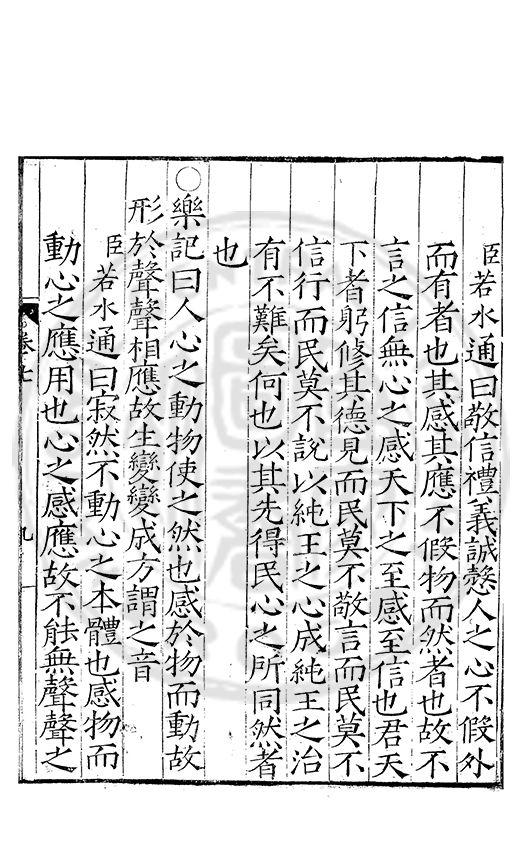 臣若水通曰敬信禮義誠慤人之心不假外
而有者也其感其應不假物而然者也故不
言之信無心之感天下之至感至信也君天
下者躬修其德見而民莫不敬言而民莫不
信行而民莫不說以純王之心成純王之治
有不難矣何也以其先得民心之所同然者
也
○樂記曰人心之動物使之然也感於物而動故
形於聲聲相應故生變變成方謂之音
臣若水通曰寂然不動心之本體也感物而
動心之應用也心之感應故不能無聲聲之
卷七
九